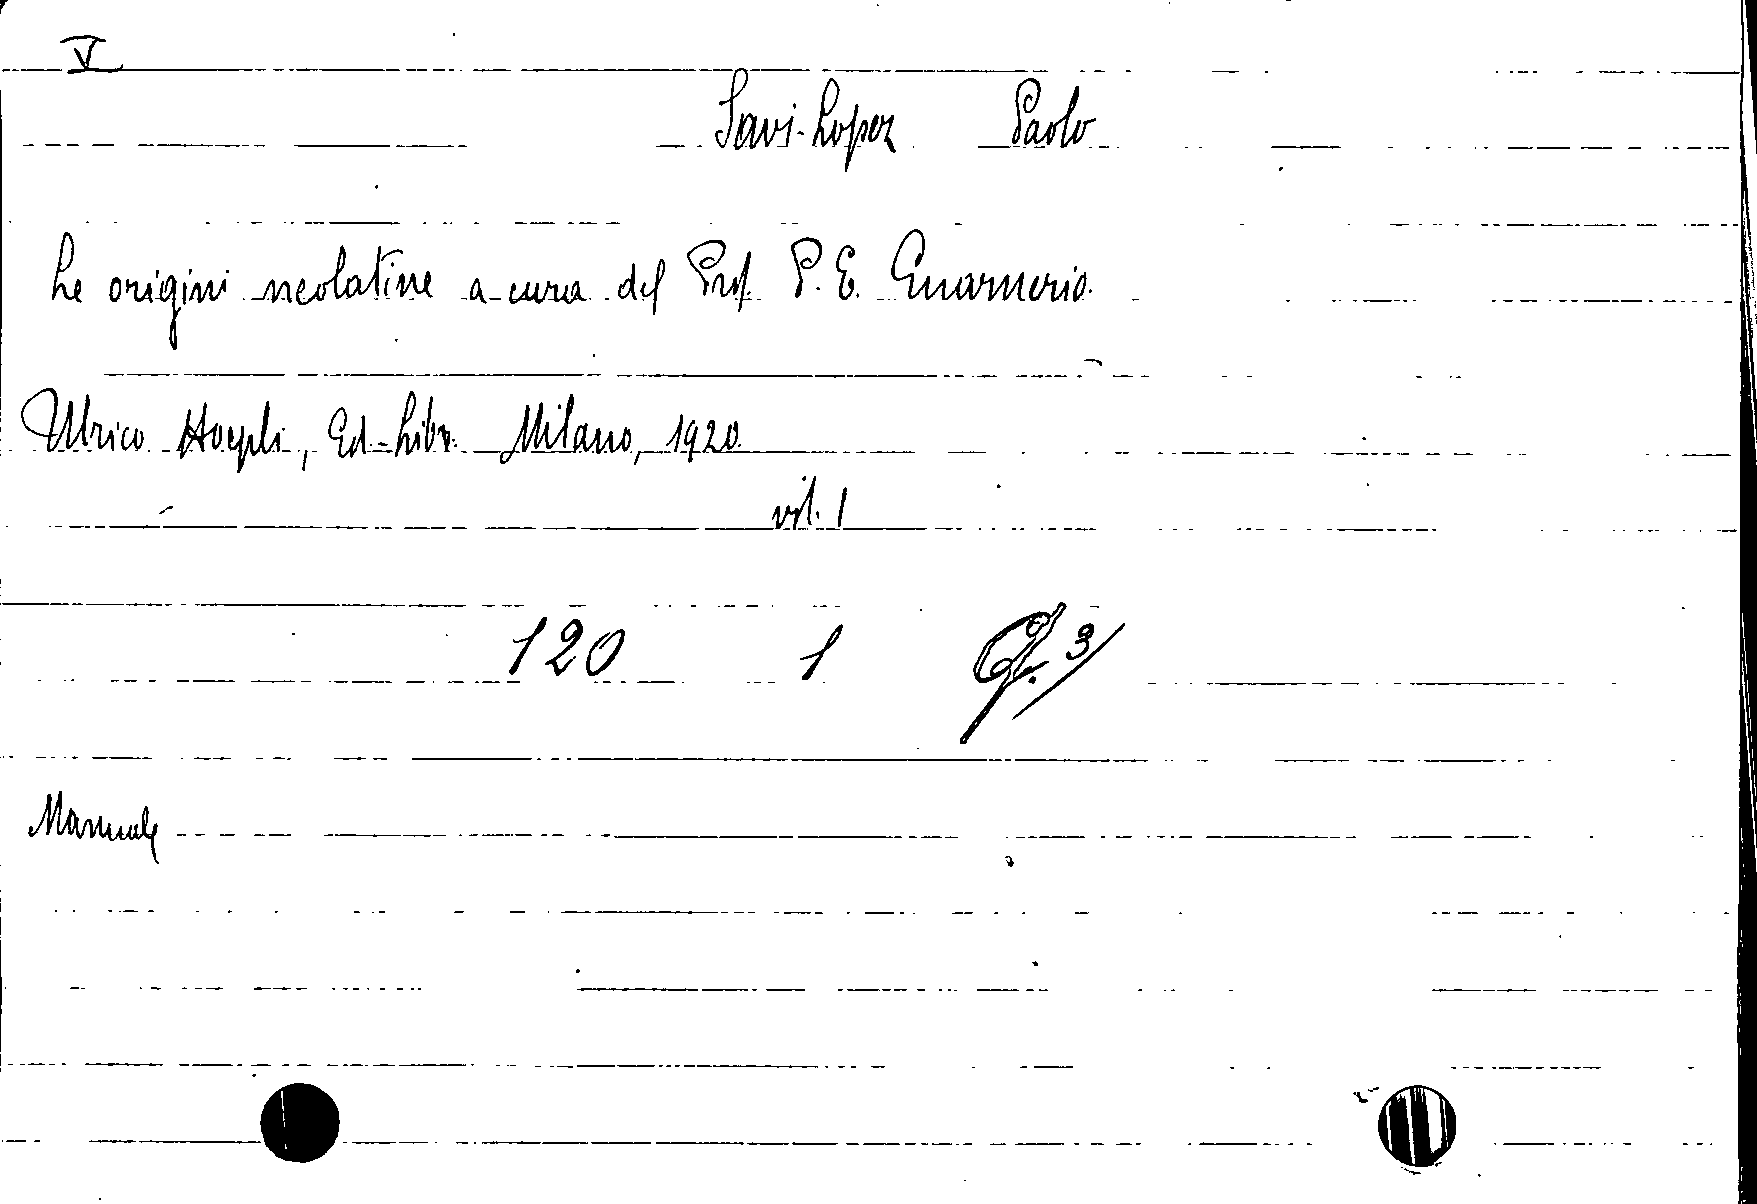 V
Savi-Lopez Paolo
Le origini neolatine a cura del Prof. P. E. Guarnerio.
Ulrico Hoepli, Ed-Libr. Milano, 1920
vol. 1
120 1 3
Manuale